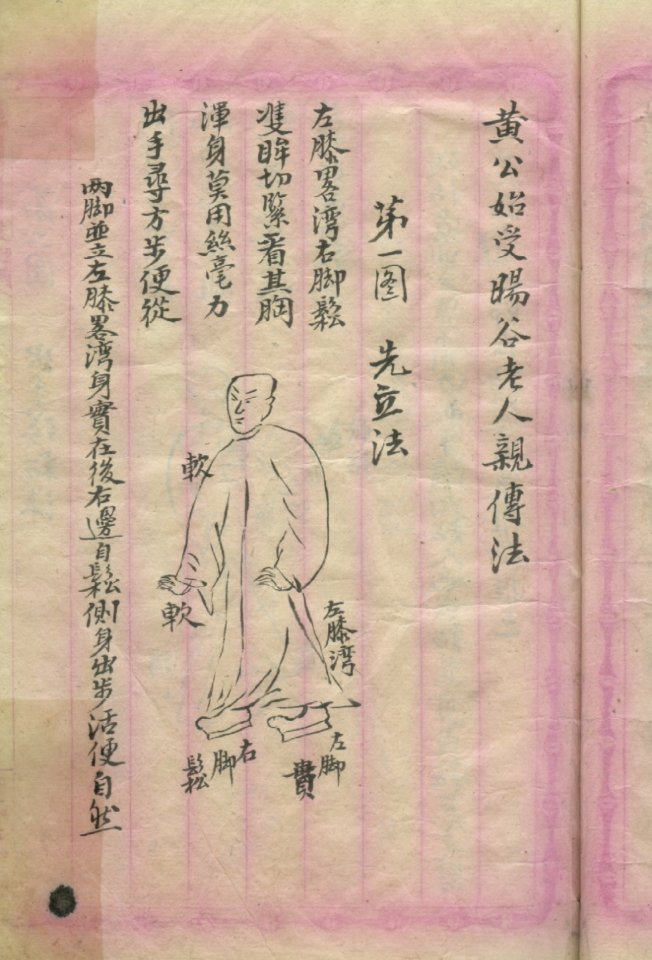 黄公始受暘谷老人親傳法
第一图　先立法
左膝畧湾右脚鬆
隻眸切緊看其胸
渾身莫用絲毫力
出手尋方步便從
两脚並立左膝畧湾身實在後右邊自鬆側身出步活便自然
軟
軟
左膝湾
左脚
實
右脚
鬆